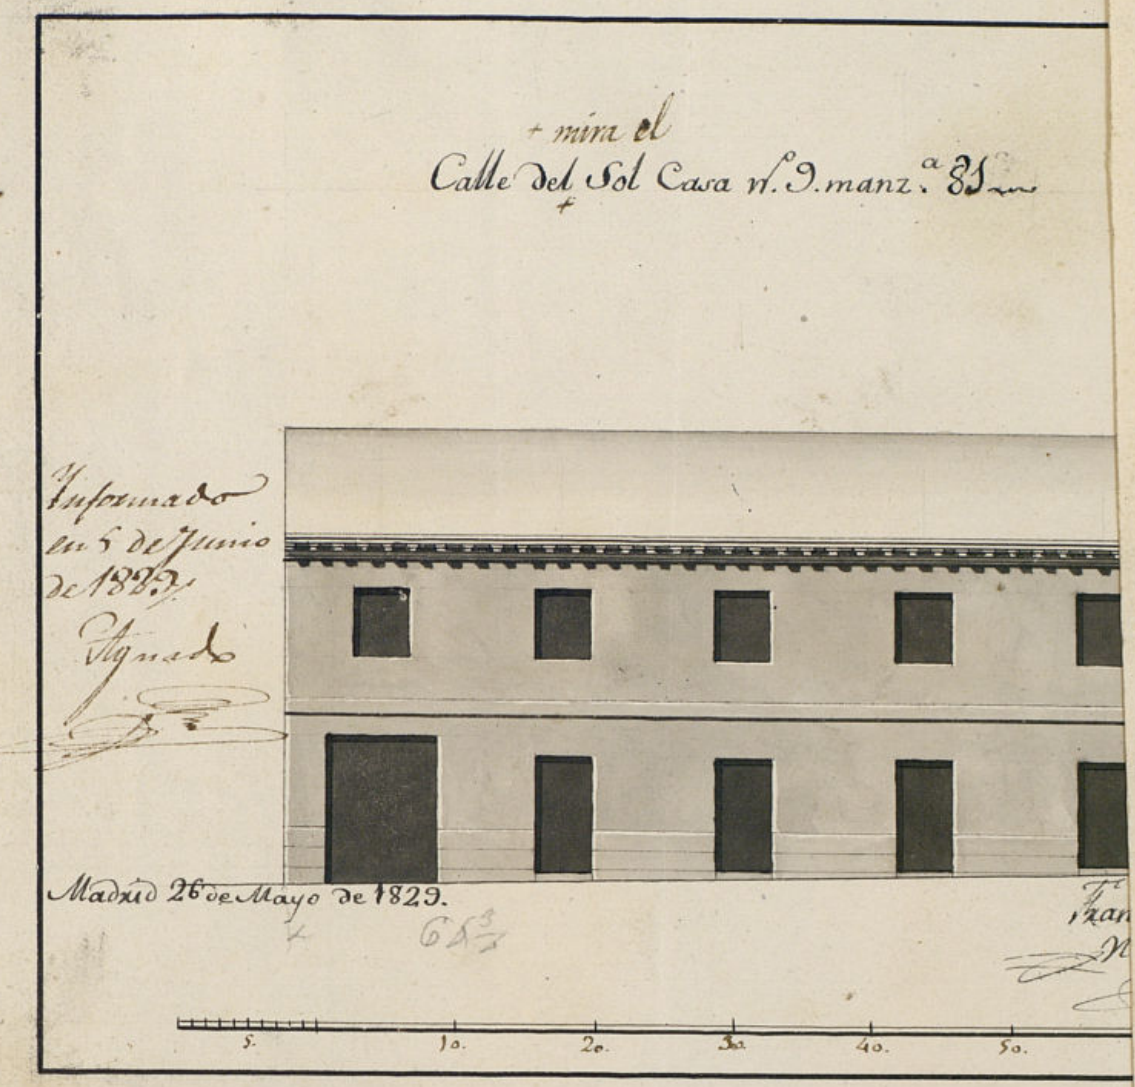 + mira el
Calle del Sol Casa nº. 9. manz.ª 81
+
Informado
en 5 de Junio
de 1829
Aguado
Madrid 26 de Mayo de 1829.
5. 10. 20. 30. 40. 50.